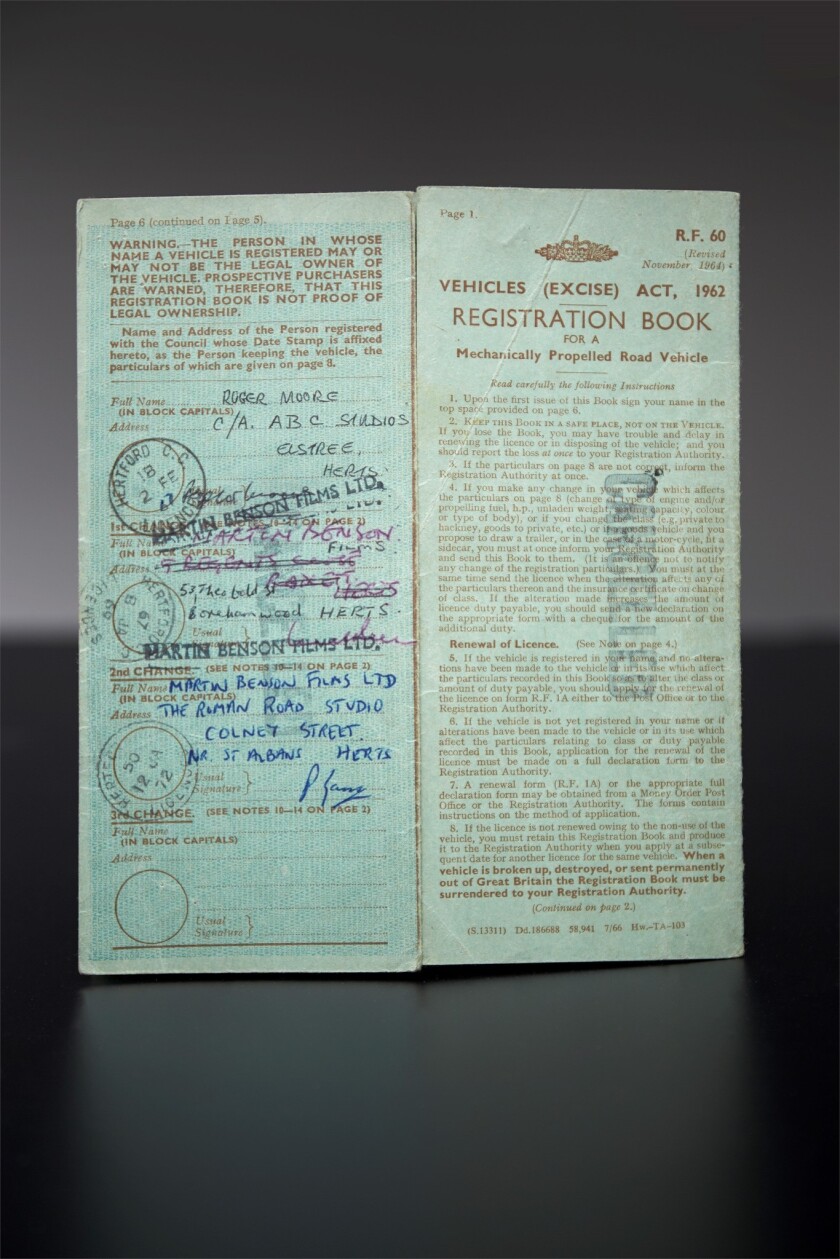 Page 6 (continued on Page 5).
WARNING.—THE PERSON IN WHOSE
NAME A VEHICLE IS REGISTERED MAY OR
MAY NOT BE THE LEGAL OWNER OF
THE VEHICLE. PROSPECTIVE PURCHASERS
ARE WARNED, THEREFORE, THAT THIS
REGISTRATION BOOK IS NOT PROOF OF
LEGAL OWNERSHIP.
Name and Address of the Person registered
with the Council whose Date Stamp is affixed
hereto, as the Person keeping the vehicle, the
particulars of which are given on page 8.
Full Name ROGER MOORE
(IN BLOCK CAPITALS)
Address C/A. ABC STUDIOS
ELSTREE,
HERTS.
HERTFORD C.C.
18
2 FE
MARTIN BENSON FILMS LTD.
1st CHANGE. (SEE NOTES 10—14 ON PAGE 2)
Full Name MARTIN BENSON
(IN BLOCK CAPITALS) FILMS
Address
53 Theobald St
Borehamwood HERTS.
Usual
MARTIN BENSON FILMS LTD.
2nd CHANGE. (SEE NOTES 10—14 ON PAGE 2)
Full Name MARTIN BENSON FILMS LTD
(IN BLOCK CAPITALS)
Address THE ROMAN ROAD STUDIO
COLNEY STREET.
NR. ST ALBANS HERTS
Usual
Signature
3rd CHANGE. (SEE NOTES 10—14 ON PAGE 2)
Full Name
(IN BLOCK CAPITALS)
Address
Usual
Signature
Page 1.
R.F. 60
(Revised
November, 1964)
VEHICLES (EXCISE) ACT, 1962
REGISTRATION BOOK
FOR A
Mechanically Propelled Road Vehicle
Read carefully the following Instructions
1. Upon the first issue of this Book sign your name in the
top space provided on page 6.
2. KEEP THIS BOOK IN A SAFE PLACE, NOT ON THE VEHICLE.
If you lose the Book, you may have trouble and delay in
renewing the licence or in disposing of the vehicle; and you
should report the loss at once to your Registration Authority.
3. If the particulars on page 8 are not correct, inform the
Registration Authority at once.
4. If you make any change in your vehicle which affects
the particulars on page 8 (change of type of engine and/or
propelling fuel, h.p., unladen weight, seating capacity, colour
or type of body), or if you change its class (e.g. private to
hackney, goods to private, etc.) or if a goods vehicle and you
propose to draw a trailer, or in the case of a motor-cycle, fit a
sidecar, you must at once inform your Registration Authority
and send this Book to them. (It is an offence not to notify
any change of the registration particulars.) You must at the
same time send the licence when the alteration affects any of
the particulars thereon and the insurance certificate on change
of class. If the alteration made increases the amount of
licence duty payable, you should send a new declaration on
the appropriate form with a cheque for the amount of the
additional duty.
Renewal of Licence. (See Note on page 4.)
5. If the vehicle is registered in your name and no altera-
tions have been made to the vehicle or in its use which affect
the particulars recorded in this Book or alter the class or
amount of duty payable, you should apply for the renewal of
the licence on form R.F. 1A either to the Post Office or to the
Registration Authority.
6. If the vehicle is not yet registered in your name or if
alterations have been made to the vehicle or in its use which
affect the particulars relating to class or duty payable
recorded in this Book, application for the renewal of the
licence must be made on a full declaration form to the
Registration Authority.
7. A renewal form (R.F. 1A) or the appropriate full
declaration form may be obtained from a Money Order Post
Office or the Registration Authority. The forms contain
instructions on the method of application.
8. If the licence is not renewed owing to the non-use of the
vehicle, you must retain this Registration Book and produce
it to the Registration Authority when you apply at a subse-
quent date for another licence for the same vehicle. When a
vehicle is broken up, destroyed, or sent permanently
out of Great Britain the Registration Book must be
surrendered to your Registration Authority.
(Continued on page 2.)
(S.13311) Dd.186688 58,941 7/66 Hw.—TA-103
CANCELLED